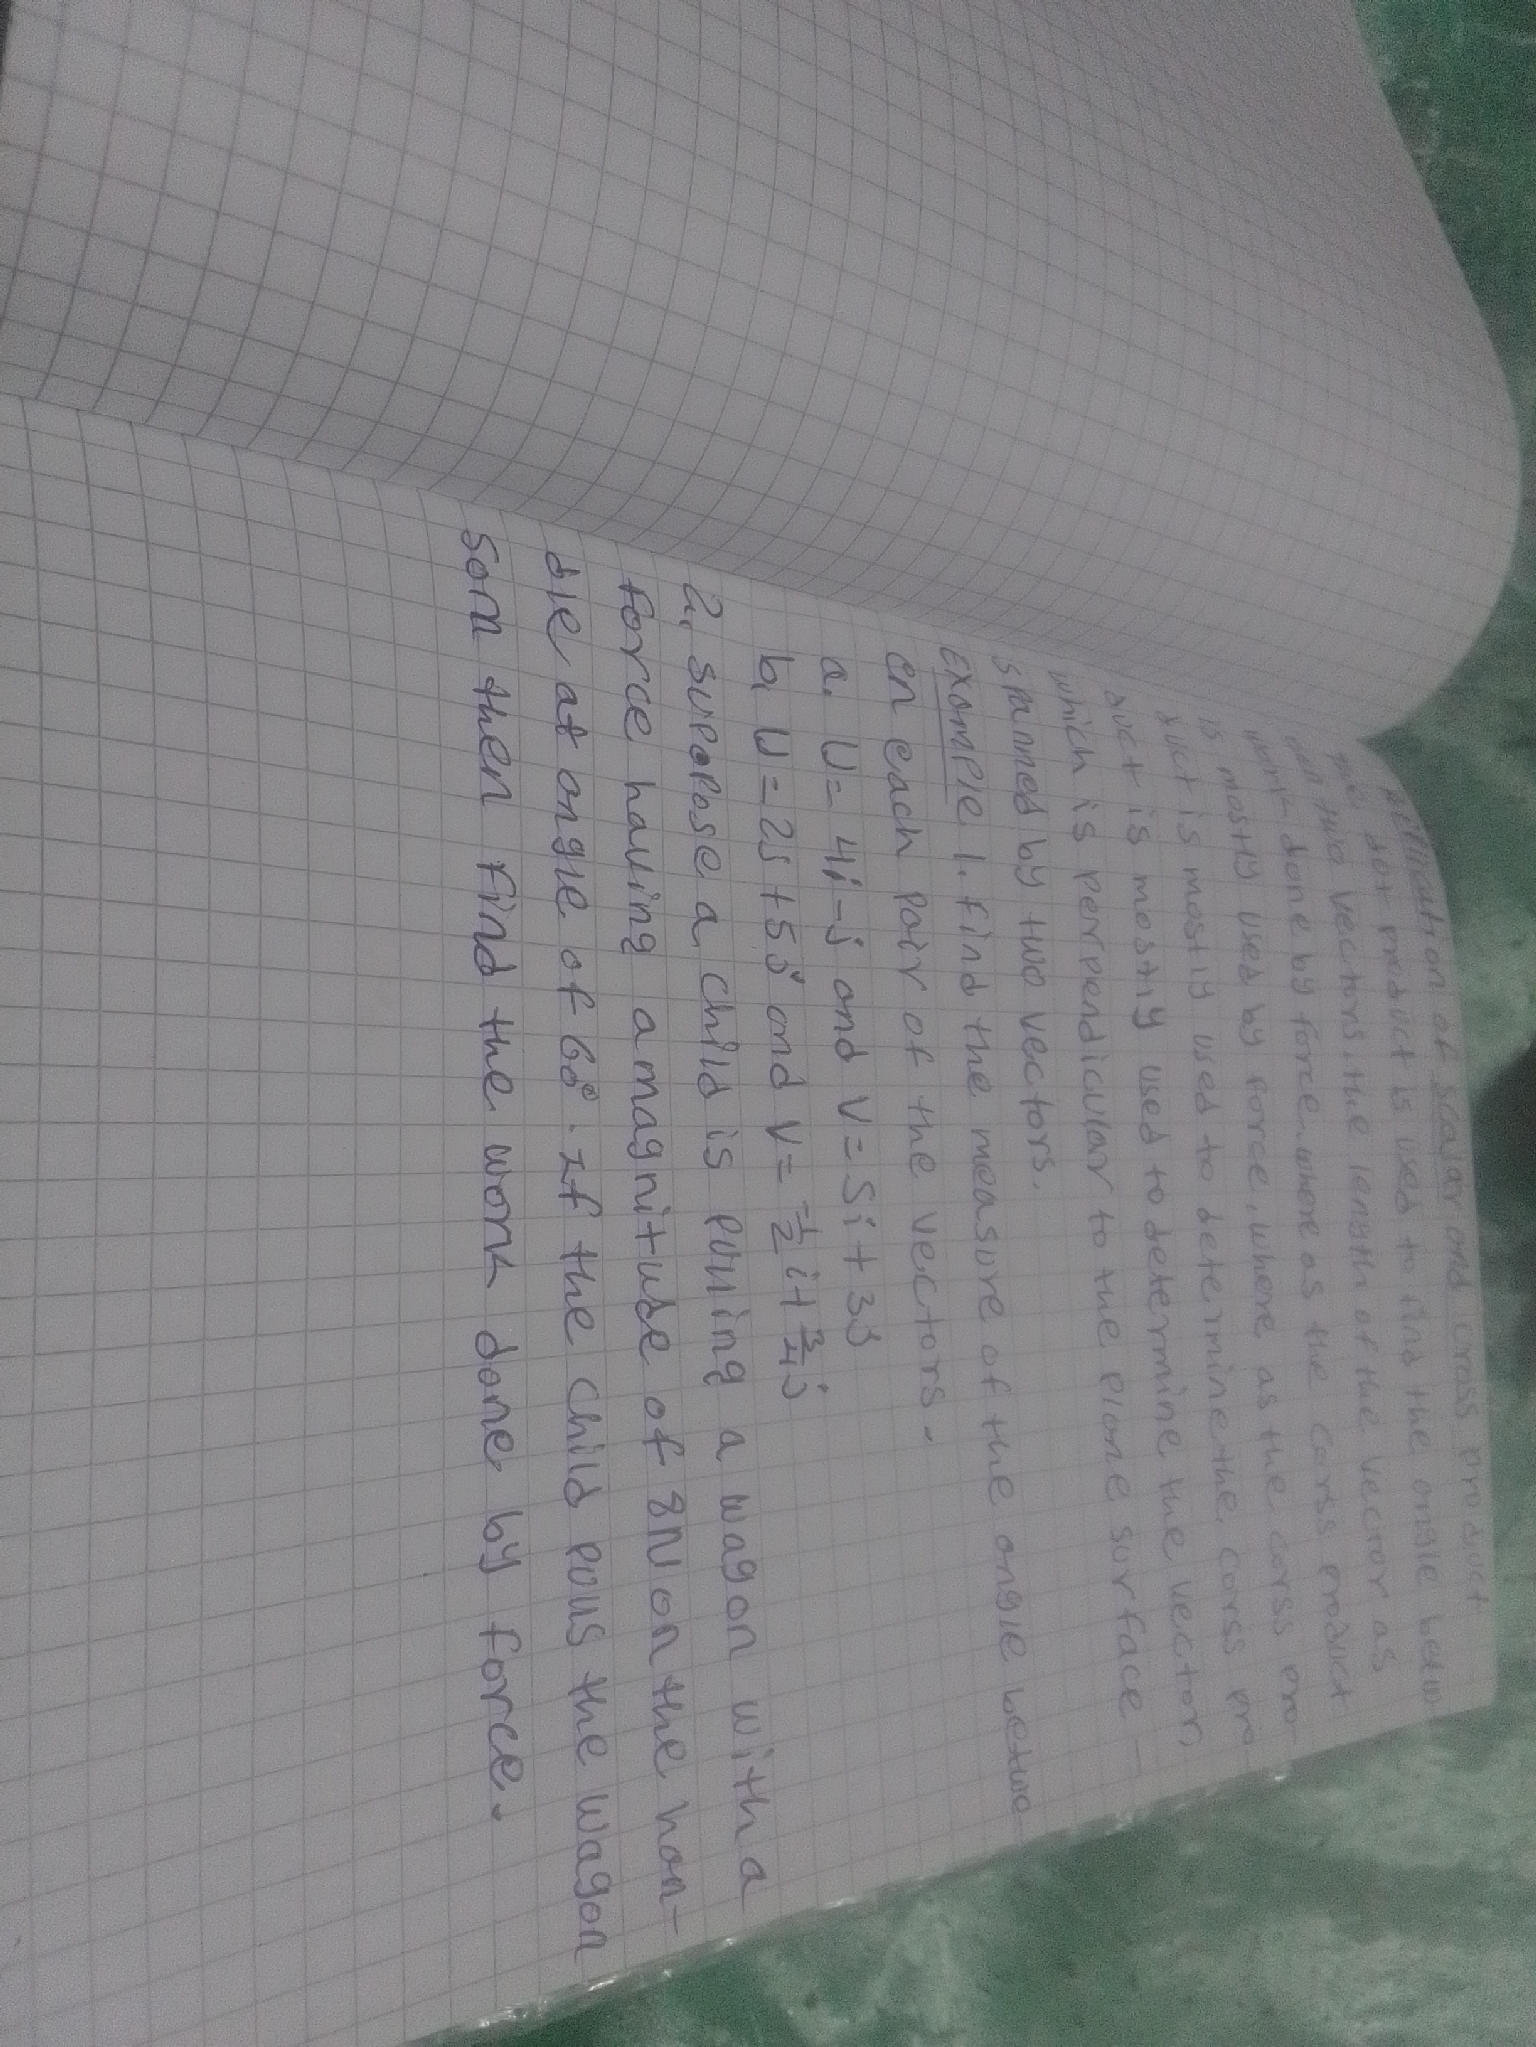 Application of scalar and cross product
The dot product is used to find the angle betwe
een two vectors, the length of the vector as
work done by force. where as the carss product
is mostly used by force, where as the corss pro
duct is mostly used to determine the corss pro-
duct is mostly used to determine the vector
which is perpendicular to the plane surface -
spanned by two vectors.
Example 1. find the measure of the angle betwe
en each pair of the vectors.
a. U = 4i - j and V = 5i + 3j
b, U = 2j + 5j and V = -1/2 i + 3/4 j
2. suppose a child is pulling a wagon with a
force having a magnitude of 8N on the han-
dle at angle of 60°. If the child pulls the wagon
50m then find the work done by force.